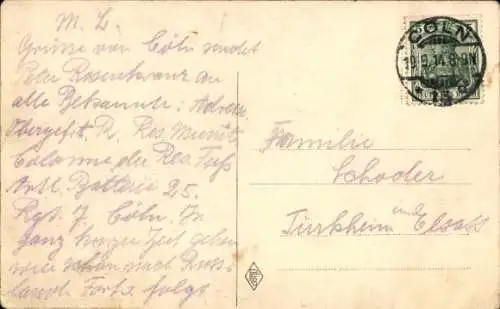 M. L
Grüsse von Cöln sendet
Peter Rosenkranz an
alle Bekannte: Adresse
Obergefr. R. Res. Munit.
Colonne der Res. Fuß
Artl. Batterie 25.
Rgt. 7. Cöln. In
ganz kurzer Zeit gehen
wir schon nach Russ-
land Forts. folgt.
CÖLN
19.9.14.8-9N
Familie
Schoder
Türkheim
Elsaß